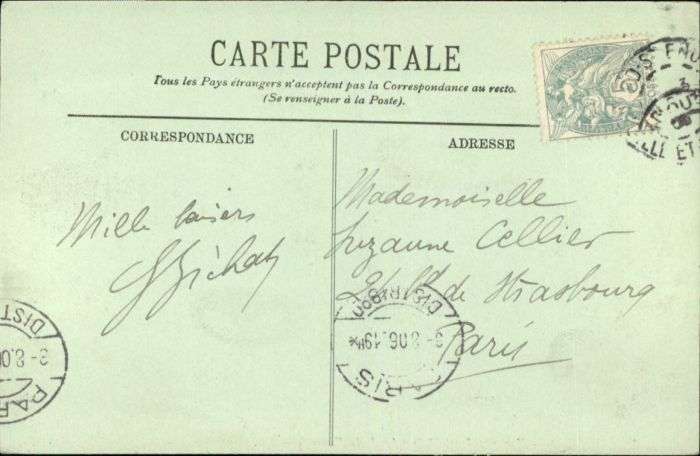 CARTE POSTALE
Tous les Pays étrangers n'acceptent pas la Correspondance au recto.
(Se renseigner à la Poste).
CORRESPONDANCE
ADRESSE
Mille baisers
Mademoiselle
Suzanne Cellier
Bd de Strasbourg
Paris
PARIS
DISTRIBUTION
3-8 06
PAR
DIST
3-8.0